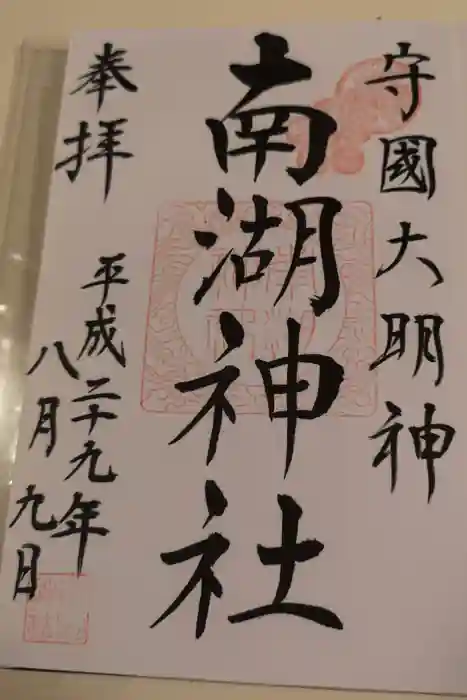 守國大明神
南湖神社
奉拝
平成二十九年
八月九日